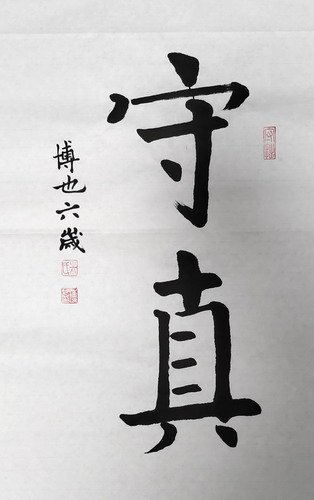 守真
博也六歲